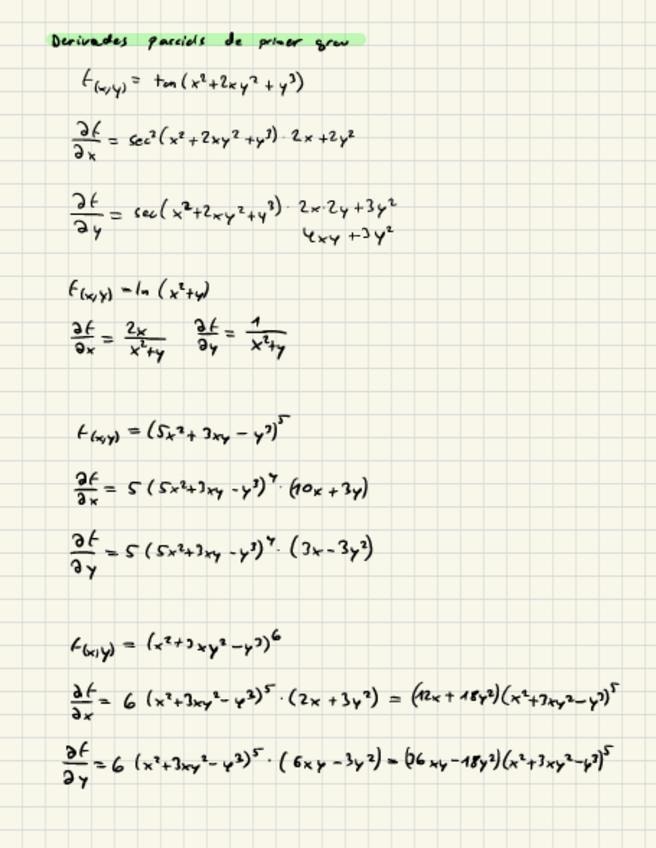 Derivades parcials de primer grau
f(x,y) = tan(x²+2xy²+y³)
∂f/∂x = sec²(x²+2xy²+y³) · 2x+2y²
∂f/∂y = sec(x²+2xy²+y³) · 2x·2y+3y²
4xy+3y²
f(x,y) = ln(x²+y)
∂f/∂x = 2x/(x²+y) ∂f/∂y = 1/(x²+y)
f(x,y) = (5x²+3xy-y³)⁵
∂f/∂x = 5(5x²+3xy-y³)⁴ · (10x+3y)
∂f/∂y = 5(5x²+3xy-y³)⁴ · (3x-3y²)
f(x,y) = (x²+3xy²-y³)⁶
∂f/∂x = 6(x²+3xy²-y³)⁵ · (2x+3y²) = (12x+18y²)(x²+3xy²-y³)⁵
∂f/∂y = 6(x²+3xy²-y³)⁵ · (6xy-3y²) = (36xy-18y²)(x²+3xy²-y³)⁵